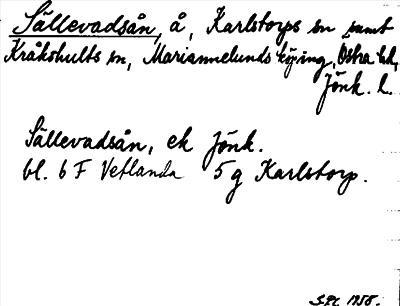 Sällevadsån, å, Karlstorps sn samt
Kråkshults sn, Mariannelunds köping, Östra hd,
Jönk. l.
Sällevadsån, ek Jönk.
bl. 6 F Vetlanda 5 g Karlstorp.
1958.